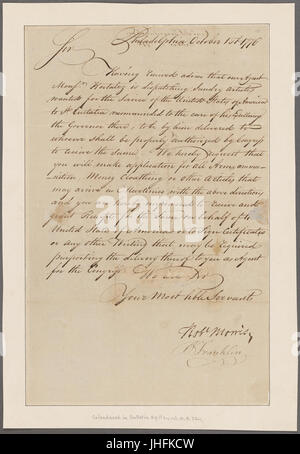 Philadelphia October 1st 1776
Sir
Having received advice that our Agent
Monsr. Hortalez is dispatching Sundry articles
wanted for the Service of the United States of America
to St Eustatia recommended to the care of his Excellency
the Governor there, to be by him delivered to
whoever shall be properly authorized by Congress
to receive the Same. We hereby request that
you will make application for all Arms Ammu-
nition Money Cloathing or other Articles that
may arrive in St Eustatia with the above direction,
and you are fully impowered to receive and
grant Receipts for the Same on behalf of the
United States of America or to Sign Certificates
or any other Writing that may be required
purporting the delivery thereof to you as Agent
for the Congress. We are Sir
Your Most hble Servants
Robt Morris
B Franklin
Calendared in Bulletin
alamy
Image ID: JHFKCW
www.alamy.com